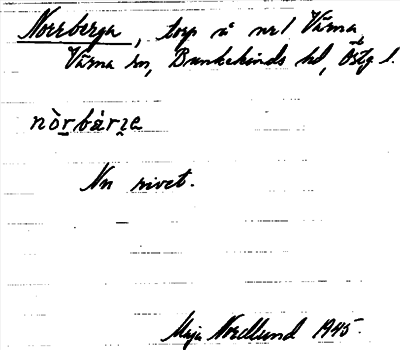 Norrberga, torp å nr 1 Vårna,
Vårna sn, Bankekinds hd, Östg l.
nòrbàrɪe
Nu rivet.
Maja Nordlund 1945.